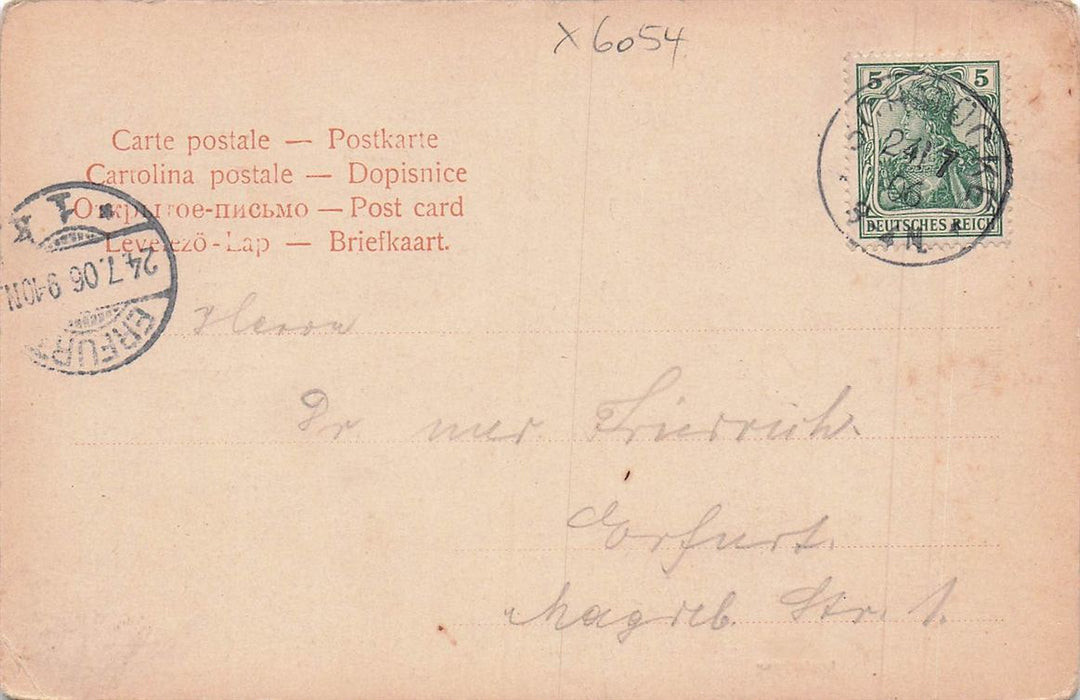 X 6054
5 5
24 7
06
8-9 N.
DEUTSCHES REICH
Carte postale — Postkarte
Cartolina postale — Dopisnice
Открытое-письмо — Post card
Levelező-Lap — Briefkaart.
* 1 k
24.7.06 9-10N.
ERFURT
Herrn
Dr med Friedrich.
Erfurt.
Magdeb. Str. 1.